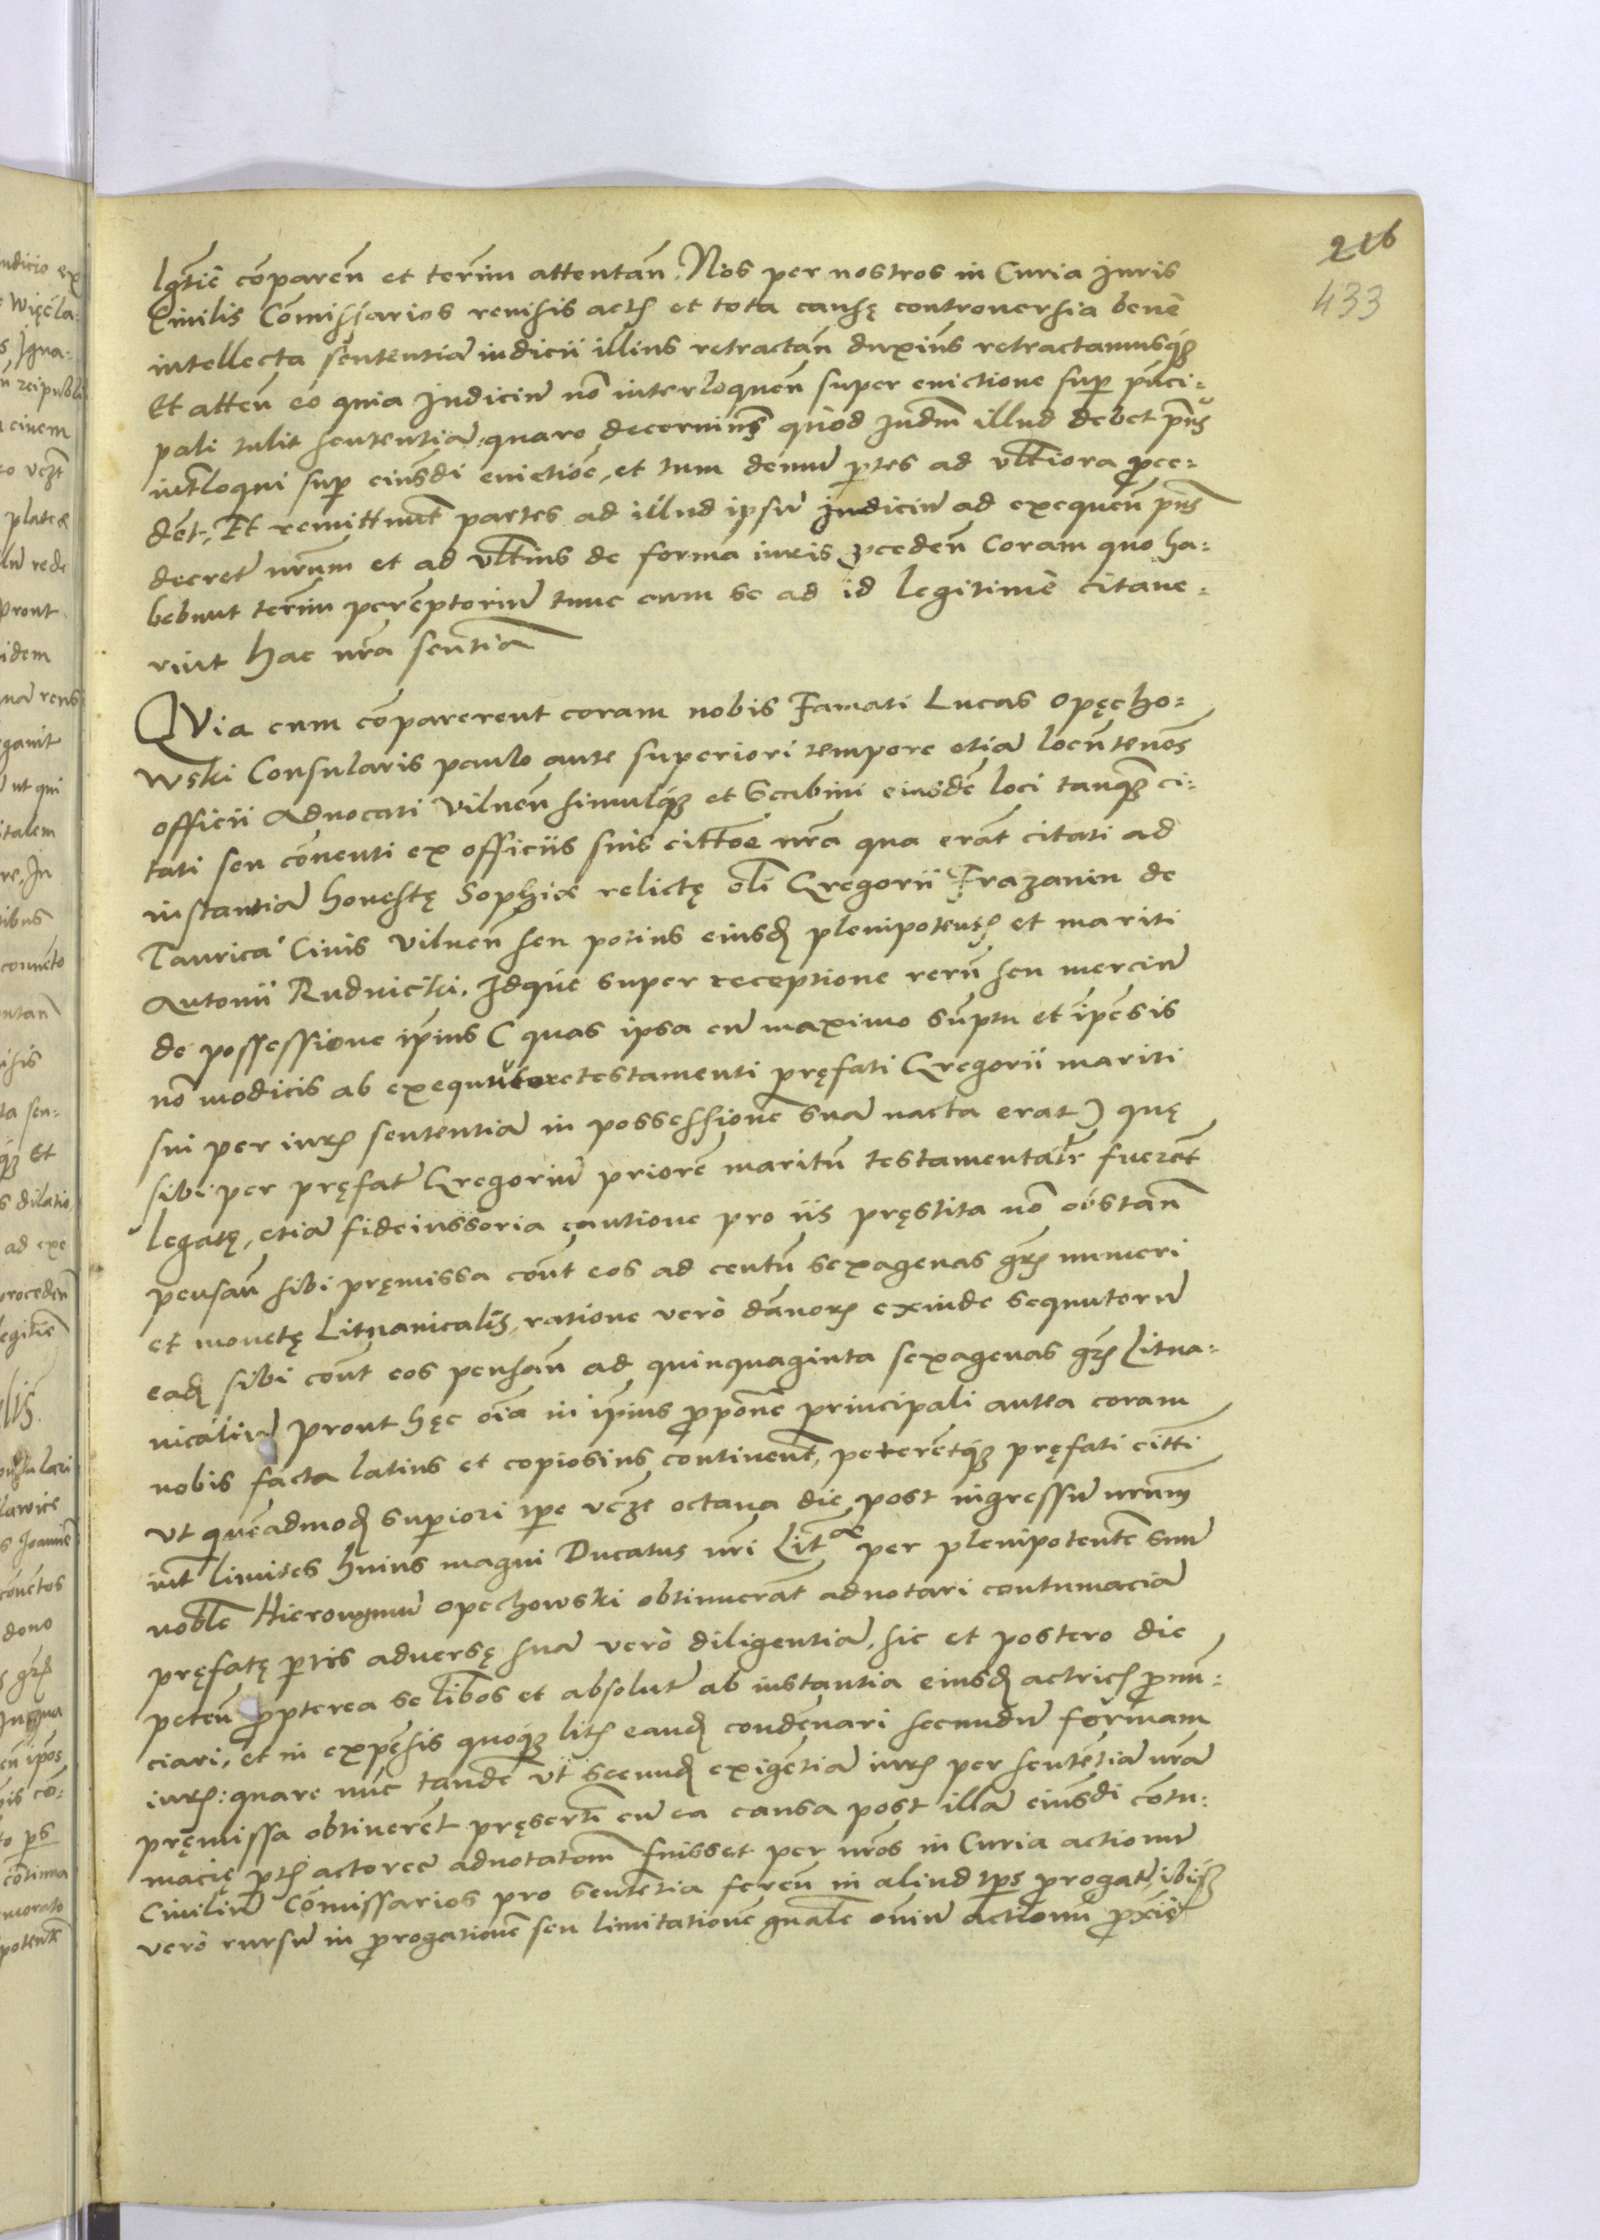 216
433
lgtie comparen et termin attentan. Nos per nostros in Curia Juris
Civilis Comissarios revisis actis et tota causę controversia bene
intellecta sententia iudicii illius retractan duximus retractamusq
Et atten eo quia Judiciu no interloquen super evictione sup pnci-
pali tulit sententia, quare decernims quod Judm illud debet prius
intloqui sup eiusdi evictioe, et tum demu ptes ad ultiora proce-
dent. Et remittunt partes ad illud ipsu Judiciu ad exequen pns
decret nrum et ad ultius de forma iuris proceden coram quo ha-
bebunt termin peremptoriu tunc cum se ad id legitime citave-
rint hac nra sentia
QVia cum comparerent coram nobis Famati Lucas Opęcho-
wski Consularis paulo ante superiori tempore etia locuntenes
officii Advocati Vilnen simulq et Scabini eiusde loci tanq ci-
tati seu conventi ex officiis suis cittoe nra qua erat citati ad
instantia honestę Sophiæ relictę oli Gregorii Frazanin de
Taurica Civis Vilnen seu potius eiusd plenipotentis et mariti
Antonii Rudnicki. Idque super receptione reru seu merciu
de possessione ipius ( quas ipsa cu maximo suptu et ipesis
no modicis ab exequutore testamenti pręfati Gregorii mariti
sui per iuris sententia in possessione sua nacta erat ) quę
sibi per pręfat Gregoriu priore maritu testamentatr fuerat
legatę, etia fideiussoria cautione pro iis pręstita no obstan
pensan sibi pręmissa cont eos ad centu sexagenas gris numeri
et monetę Lituanicalis, ratione vero danoru exinde sequutoru
ead sibi cont eos pensan ad quinquaginta sexagenas gris Litua-
nicaliu prout hęc oia in ipius proponne principali antea coram
nobis facta latius et copiosius continent, peterentq pręfati citti
Vt quemadmod superiori tpe veze octava die post ingressu nrum
int limites huius magni Ducatus nri Litæ per plenipotente suu
noble Hieronymu Opechowski obtinuerat adnotari contumacia
pręfatę ptis adversę sua vero diligentia, sic et postero die
peten propterea se libos et absolut ab instantia eiusd actricis pronu-
ciari, et in expesis quoq litis eand condenari secundu formam
iuris: quare nuc tande ut secund exigetia iuris per sententia nra
pręmissa obtineret pręserti cu ea causa post illa eiusdi contu-
macię ptis actoreę adnotatam fuisset per nros in Curia actionu
Civiliu Comissarios pro sententia feren in aliud tps progat, ibiq
vero rursu in progatione seu limitatione gnale oniu actionu proxie